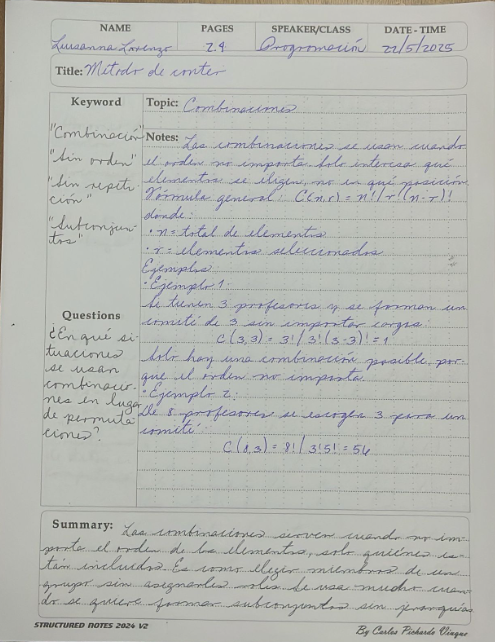 NAME PAGES SPEAKER/CLASS DATE - TIME
Luisanna Lorenzo 2.4 Programación 22/5/2025
Title: Metodo de conteo
Keyword
"Combinación"
"Sin orden"
"Sin repeti-
ción"
"Subconjun-
tos"
Questions
¿En qué si-
tuaciones
se usan
combinacio-
nes en lugar
de permuta-
ciones?
Topic: Combinaciones
Notes: Las combinaciones se usan cuando
el orden no importa. Solo interesa qué
elementos se eligen, no en qué posición
Fórmula general: C(n,r) = n!/r!(n-r)!
donde:
• n = total de elementos
• r = elementos seleccionados
Ejemplos
• Ejemplo 1:
Se tienen 3 profesores y se forman un
comité de 3 sin importar cargos:
C(3,3) = 3!/3!(3-3)! = 1
Solo hay una combinación posible, por-
que el orden no importa.
• Ejemplo 2:
De 8 profesores se escogen 3 para un
comité:
C(8,3) = 8!/3!5! = 56
Summary: Las combinaciones sirven cuando no im-
porta el orden de los elementos, solo quiénes es-
tán incluidos. Es como elegir miembros de un
grupo sin asignarles roles. Se usa mucho cuan-
do se quiere formar subconjuntos sin jerarquías
STRUCTURED NOTES 2024 V2 By Carlos Pichardo Vinque